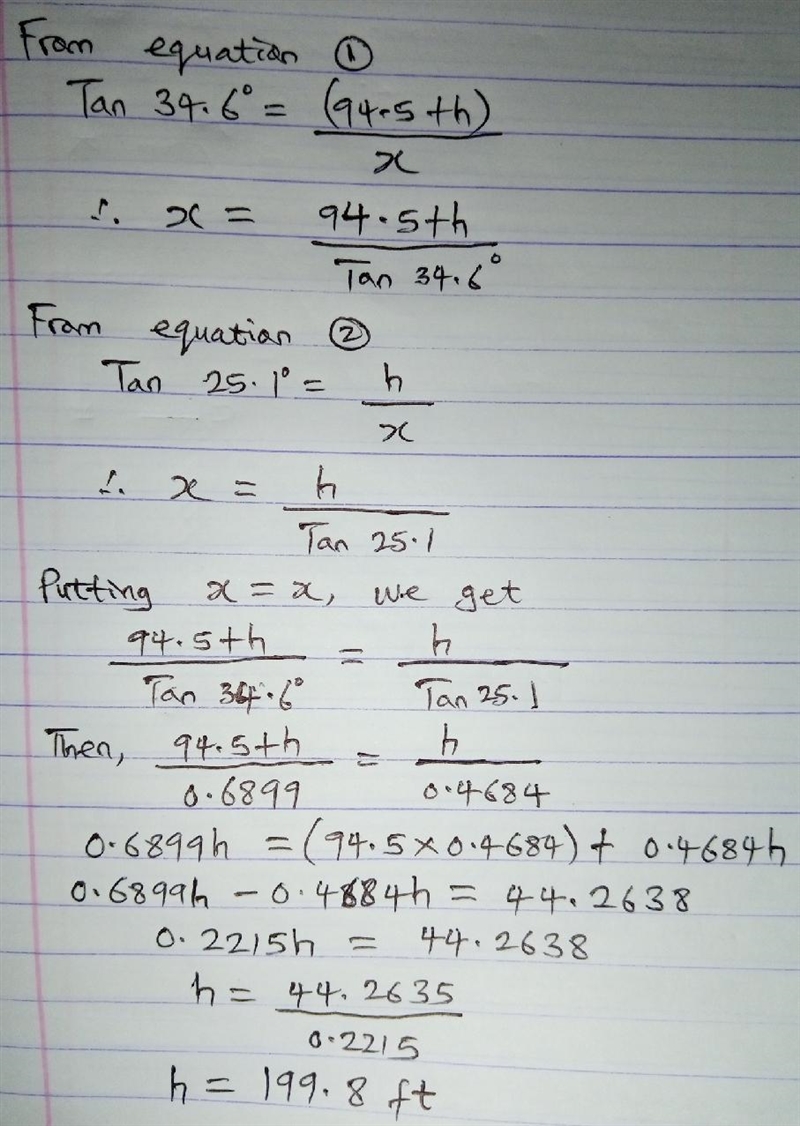 From equation ①
Tan 34.6° = (94.5+h)
x
∴ x = 94.5+h
Tan 34.6°
From equation ②
Tan 25.1° = h
x
∴ x = h
Tan 25.1
Putting x = x, we get
94.5+h = h
Tan 34.6° Tan 25.1
Then, 94.5+h = h
0.6899 0.4684
0.6899h = (94.5×0.4684) + 0.4684h
0.6899h − 0.4684h = 44.2638
0.2215h = 44.2638
h = 44.2635
0.2215
h = 199.8 ft